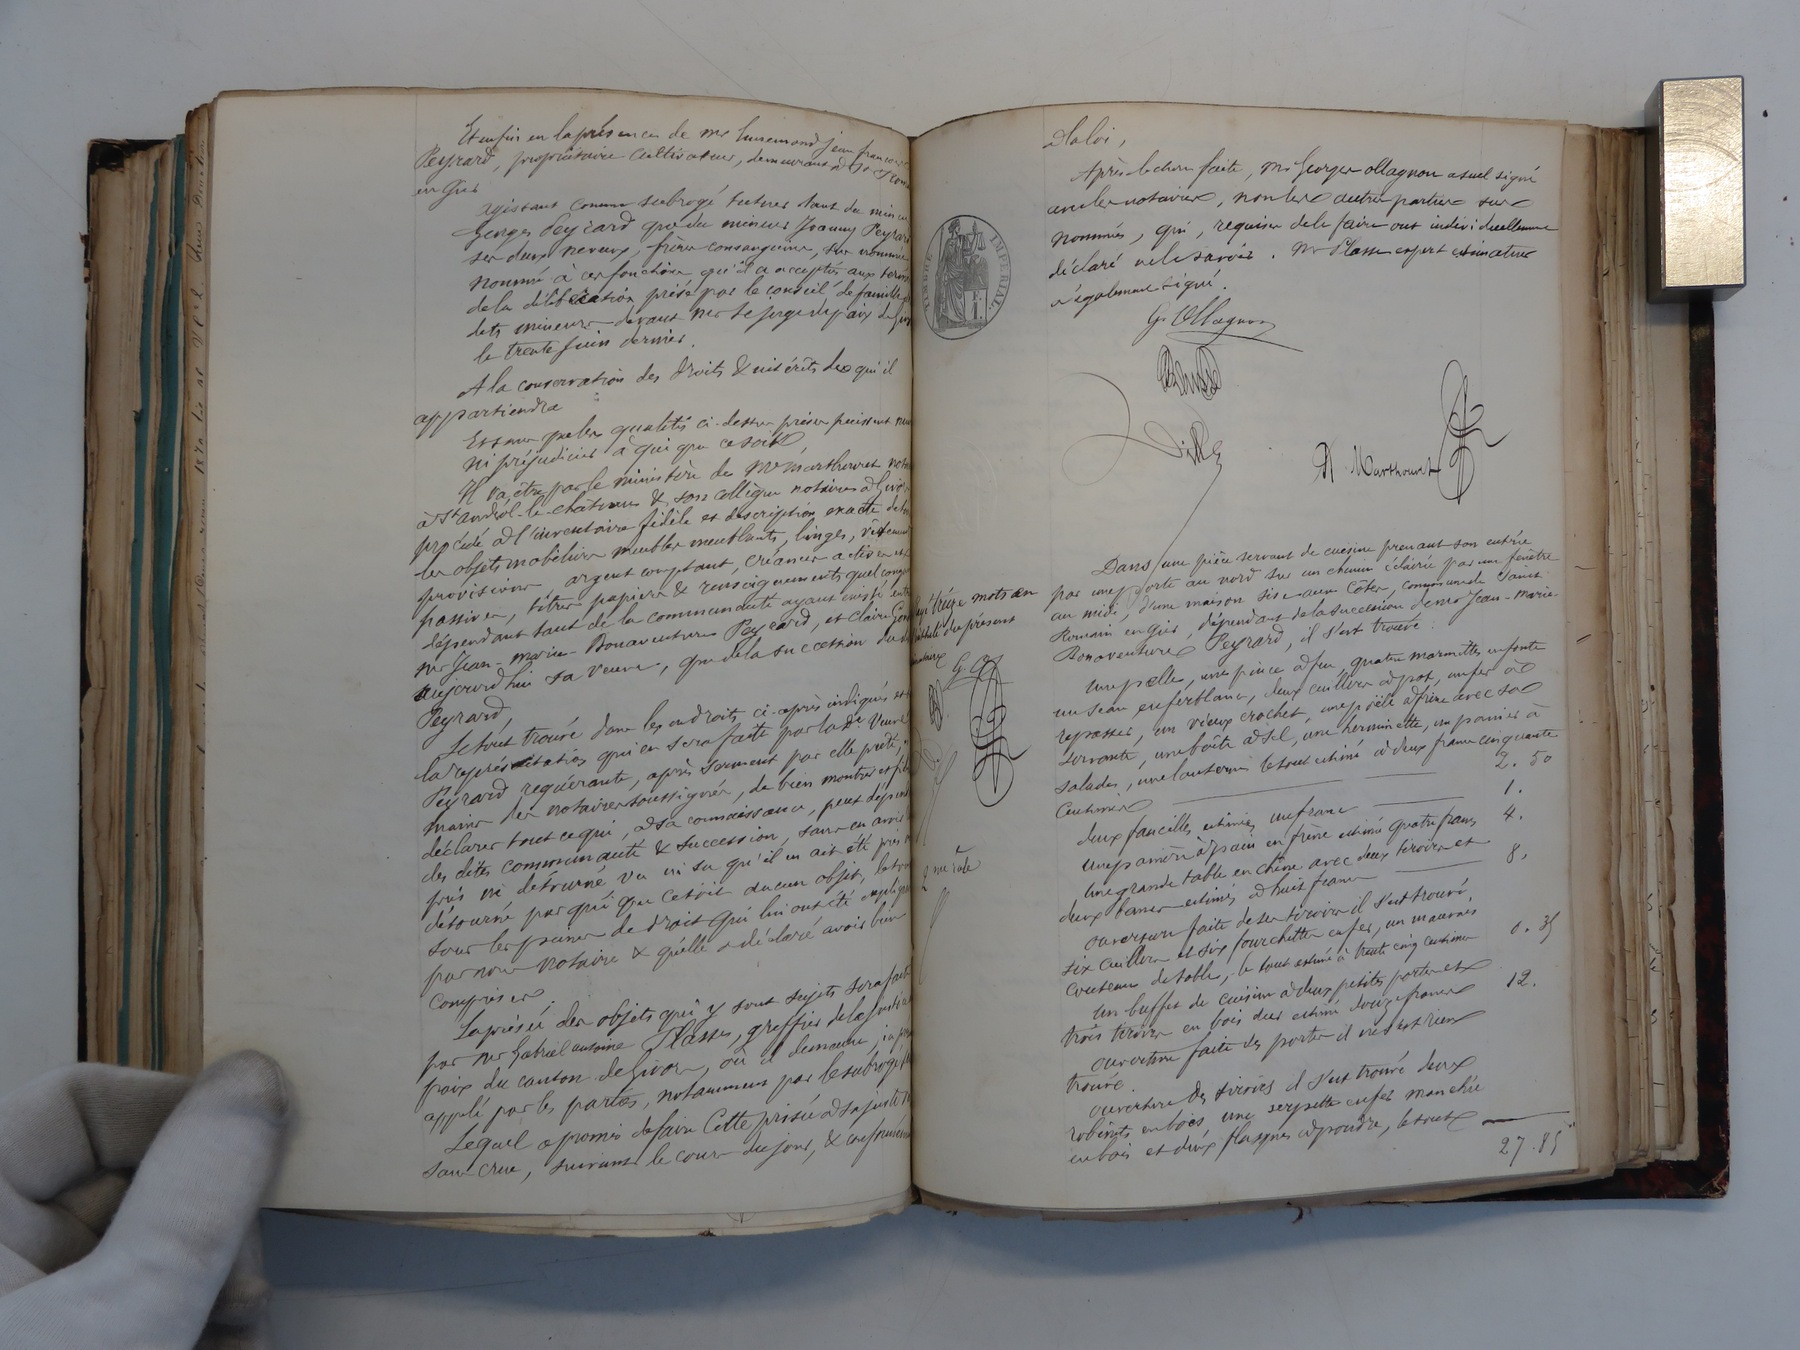 Et enfin en la présence de mr Jean françois
Peyrard, propriétaire cultivateur, demeurant à St Romain
en Gier
Agissant comme subrogé tuteur tant du mineur
Georges Peyrard que du mineur Joanny Peyrard
ses deux neveux, frères consanguins, sus nommés
nommé à ces fonctions qu'il a acceptées aux termes
de la délibération prise par le conseil de famille
dits mineurs devant mr le juge de paix de
le trente juin dernier.
A la conservation des droits & intérêts de qu'il
appartiendra
Et sans que les qualités ci-dessus prises puissent nuire
ni préjudicier à qui que ce soit
Il va, être par le ministère de Me Marthouret notaire
à St andéol-le-château & son collègue notaire à Givors
procédé à l'inventaire fidèle et description exacte de tous
les objets mobiliers meubles meublants, linges, vêtements
provisions, argent comptant, créances actives et
passives, titres papiers & renseignements quelconques
dépendant tant de la communauté ayant existé entre
mr Jean-marie-Bonaventure Peyrard, et Claire
aujourd'hui sa veuve, que de la succession du dit
Peyrard,
Le tout trouvé dans les endroits ci-après indiqués et
la représentation qui en sera faite par la de Veuve
Peyrard requérante, après serment par elle prêté,
mains des notaires soussignés, de bien montrer et
déclarer tout ce qui, à sa connaissance, peut dépendre
des dites communauté & succession, sans en avoir
pris ni détourné, vu ni su qu'il en ait été pris ni
détourné par qui que ce soit aucun objet, le tout
sous les peines de droit qui lui ont été expliquées
par nous notaire & qu'elle a déclaré avoir bien
comprises.
La prisée des objets qui y sont sujets sera faite
par mr Gabriel antoine Plasse, greffier de la justice de
paix du canton de Givors, où il demeure,
appelé par les parties, notamment par le subrogé
Lequel a promis de faire cette prisée à sa juste
sans crue, suivant le cours du jour, & conformément
à la loi,
Après lecture faite, Mr Georges Ollagnon a seul signé
avec les notaires, non les autres parties sus
nommées, qui, requises de le faire ont individuellement
déclaré ne le savoir. Mr Plasse expert estimateur
a également signé.
TIMBRE IMPÉRIAL
1 F.
G. Ollagnon
A. Marthouret
Dans une pièce servant de cuisine prenant son entrée
par une porte au nord sur un chemin éclairée par une fenêtre
au midi, d'une maison sise aux Côtes, commune de Saint
Romain en Gier, dépendant de la succession de mr Jean-Marie
Bonaventure Peyrard, il s'est trouvé.
treize mots
du présent
G. O.
Une pelle, une pince à feu, quatre marmittes en fonte
un seau en ferblanc, deux cuillers à pot, un fer à
repasser, un vieux crochet, une poële à frire avec sa
servante, une boîte à sel, une herminette, un panier à
salades, une lanterne le tout estimé à deux francs cinquante
centimes 2. 50
deux faucilles estimées un franc 1.
une panière à pain en frêne estimé quatre francs 4.
une grande table en chêne avec deux tiroirs et
deux bancs estimés à huit francs 8.
ouverture faite de ses tiroirs il s'est trouvé
six cuillers et six fourchettes en fer, un mauvais
couteau de table, le tout estimé à trente cinq centimes 0. 35
un buffet de cuisine à deux petites portes et
trois tiroirs en bois dur estimé douze francs 12.
ouverture faite des portes il ne s'est rien
trouvé
ouverture des tiroirs il s'est trouvé deux
robinets en bois une serpette en fer manchée
en bois et deux flasques à poudre, le tout
27. 85